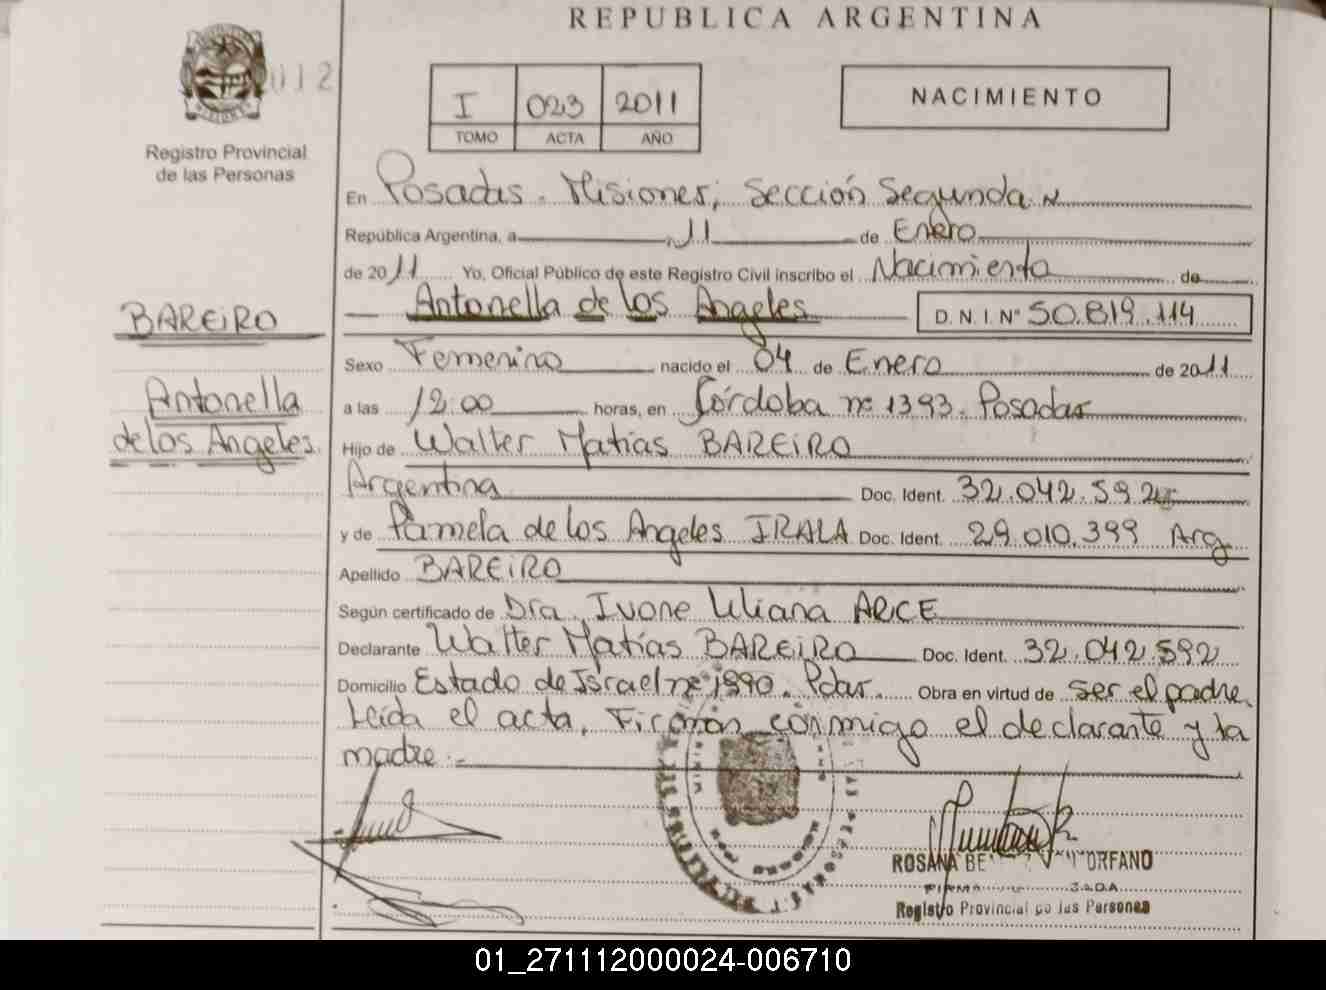 REPUBLICA ARGENTINA
012
Registro Provincial
de las Personas
I 023 2011
TOMO ACTA AÑO
NACIMIENTO
En Posadas. Misiones; Sección Segunda
República Argentina, a 11 de Enero
de 2011 Yo, Oficial Público de este Registro Civil inscribo el Nacimiento de
Antonella de los Angeles D. N. I. Nº 50.819.114
BAREIRO
Antonella
de los Angeles.
Sexo Femenino nacido el 04 de Enero de 2011
a las 12.00 horas, en Córdoba nº 1393. Posadas
Hijo de Walter Matías BAREIRO
Argentina Doc. Ident. 32.042.592
y de Pamela de los Angeles IRALA Doc. Ident. 29.010.399 Arg
Apellido BAREIRO
Según certificado de Dra. Ivone Liliana ARCE
Declarante Walter Matías BAREIRO Doc. Ident. 32.042.592
Domicilio Estado de Israel nº 1990. Pdas. Obra en virtud de ser el padre.
Leída el acta, Firman conmigo el declarante y la
madre.
ROSANA
Registro Provincial de las Personas
01_271112000024-006710